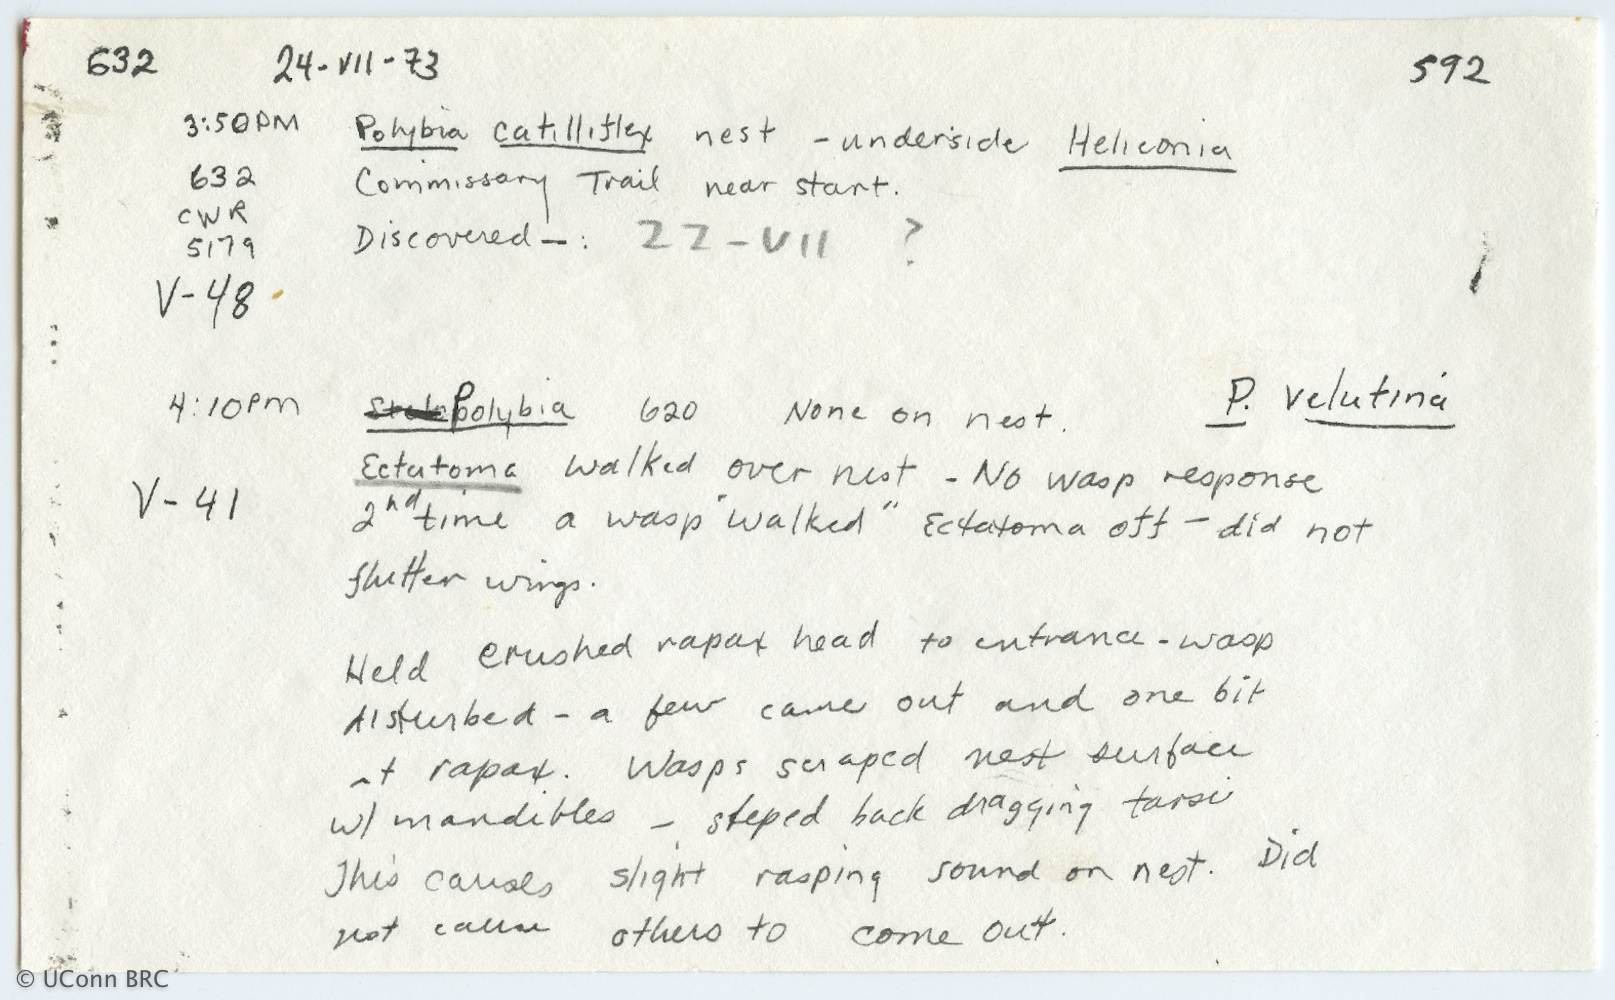 632 24-VII-73 592
3:50PM Polybia catillifex nest - underside Heliconia
632 Commissary Trail near start.
CWR
5179 Discovered - : 22-VII ?
V-48
4:10PM Polybia 620 None on nest. P. velutina
Ectatoma walked over nest - No wasp response
V-41 2nd time a wasp "walked" Ectatoma off - did not
flutter wings.
Held crushed rapax head to entrance - wasp
disturbed - a few came out and one bit
at rapax. Wasps scraped nest surface
w/ mandibles - steped back dragging tarsi
This causes slight rasping sound on nest. Did
not cause others to come out.
© UConn BRC